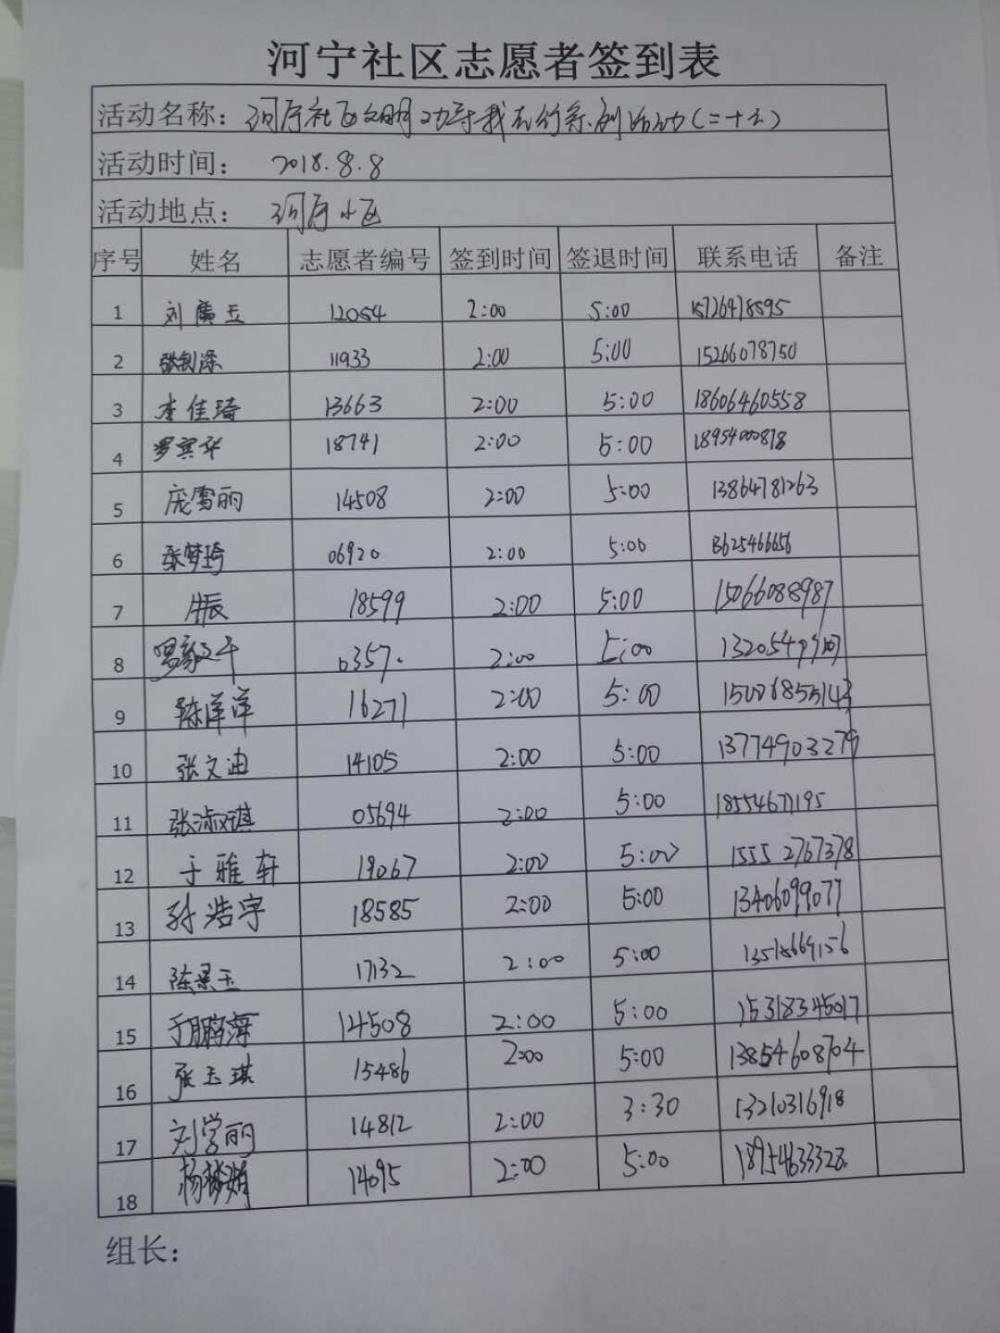 河宁社区志愿者签到表
活动名称：河宁社区文明 劝导我先行系列活动(二十六)
活动时间： 2018.8.8
活动地点： 河宁小区
序号 姓名 志愿者编号 签到时间 签退时间 联系电话 备注
1 刘广玉 12054 2:00 5:00 15726478595
2 11933 2:00 5:00 15266078750
3 李佳琦 13663 2:00 5:00 18606460558
4 罗宾华 18741 2:00 5:00 18954000878
5 庞雪丽 14508 2:00 5:00 13864781263
6 张梦琦 06920 2:00 5:00 13625466656
7 18599 2:00 5:00 15066088987
8 2:00 5:00
9 陈洋洋 16271 2:00 5:00
10 张文迪 14105 2:00 5:00 13774903279
11 张淑琪 05694 2:00 5:00 18554671195
12 于雅轩 19067 2:00 5:00 15552767378
13 孙浩宇 18585 2:00 5:00 13406099077
14 陈景玉 17132 2:00 5:00
15 于鹏海 14508 2:00 5:00 15318345017
16 张玉琪 15486 2:00 5:00 13854608704
17 刘学丽 14812 2:00 3:30 13210316918
18 杨梦娟 14095 2:00 5:00 18954633328
组长：